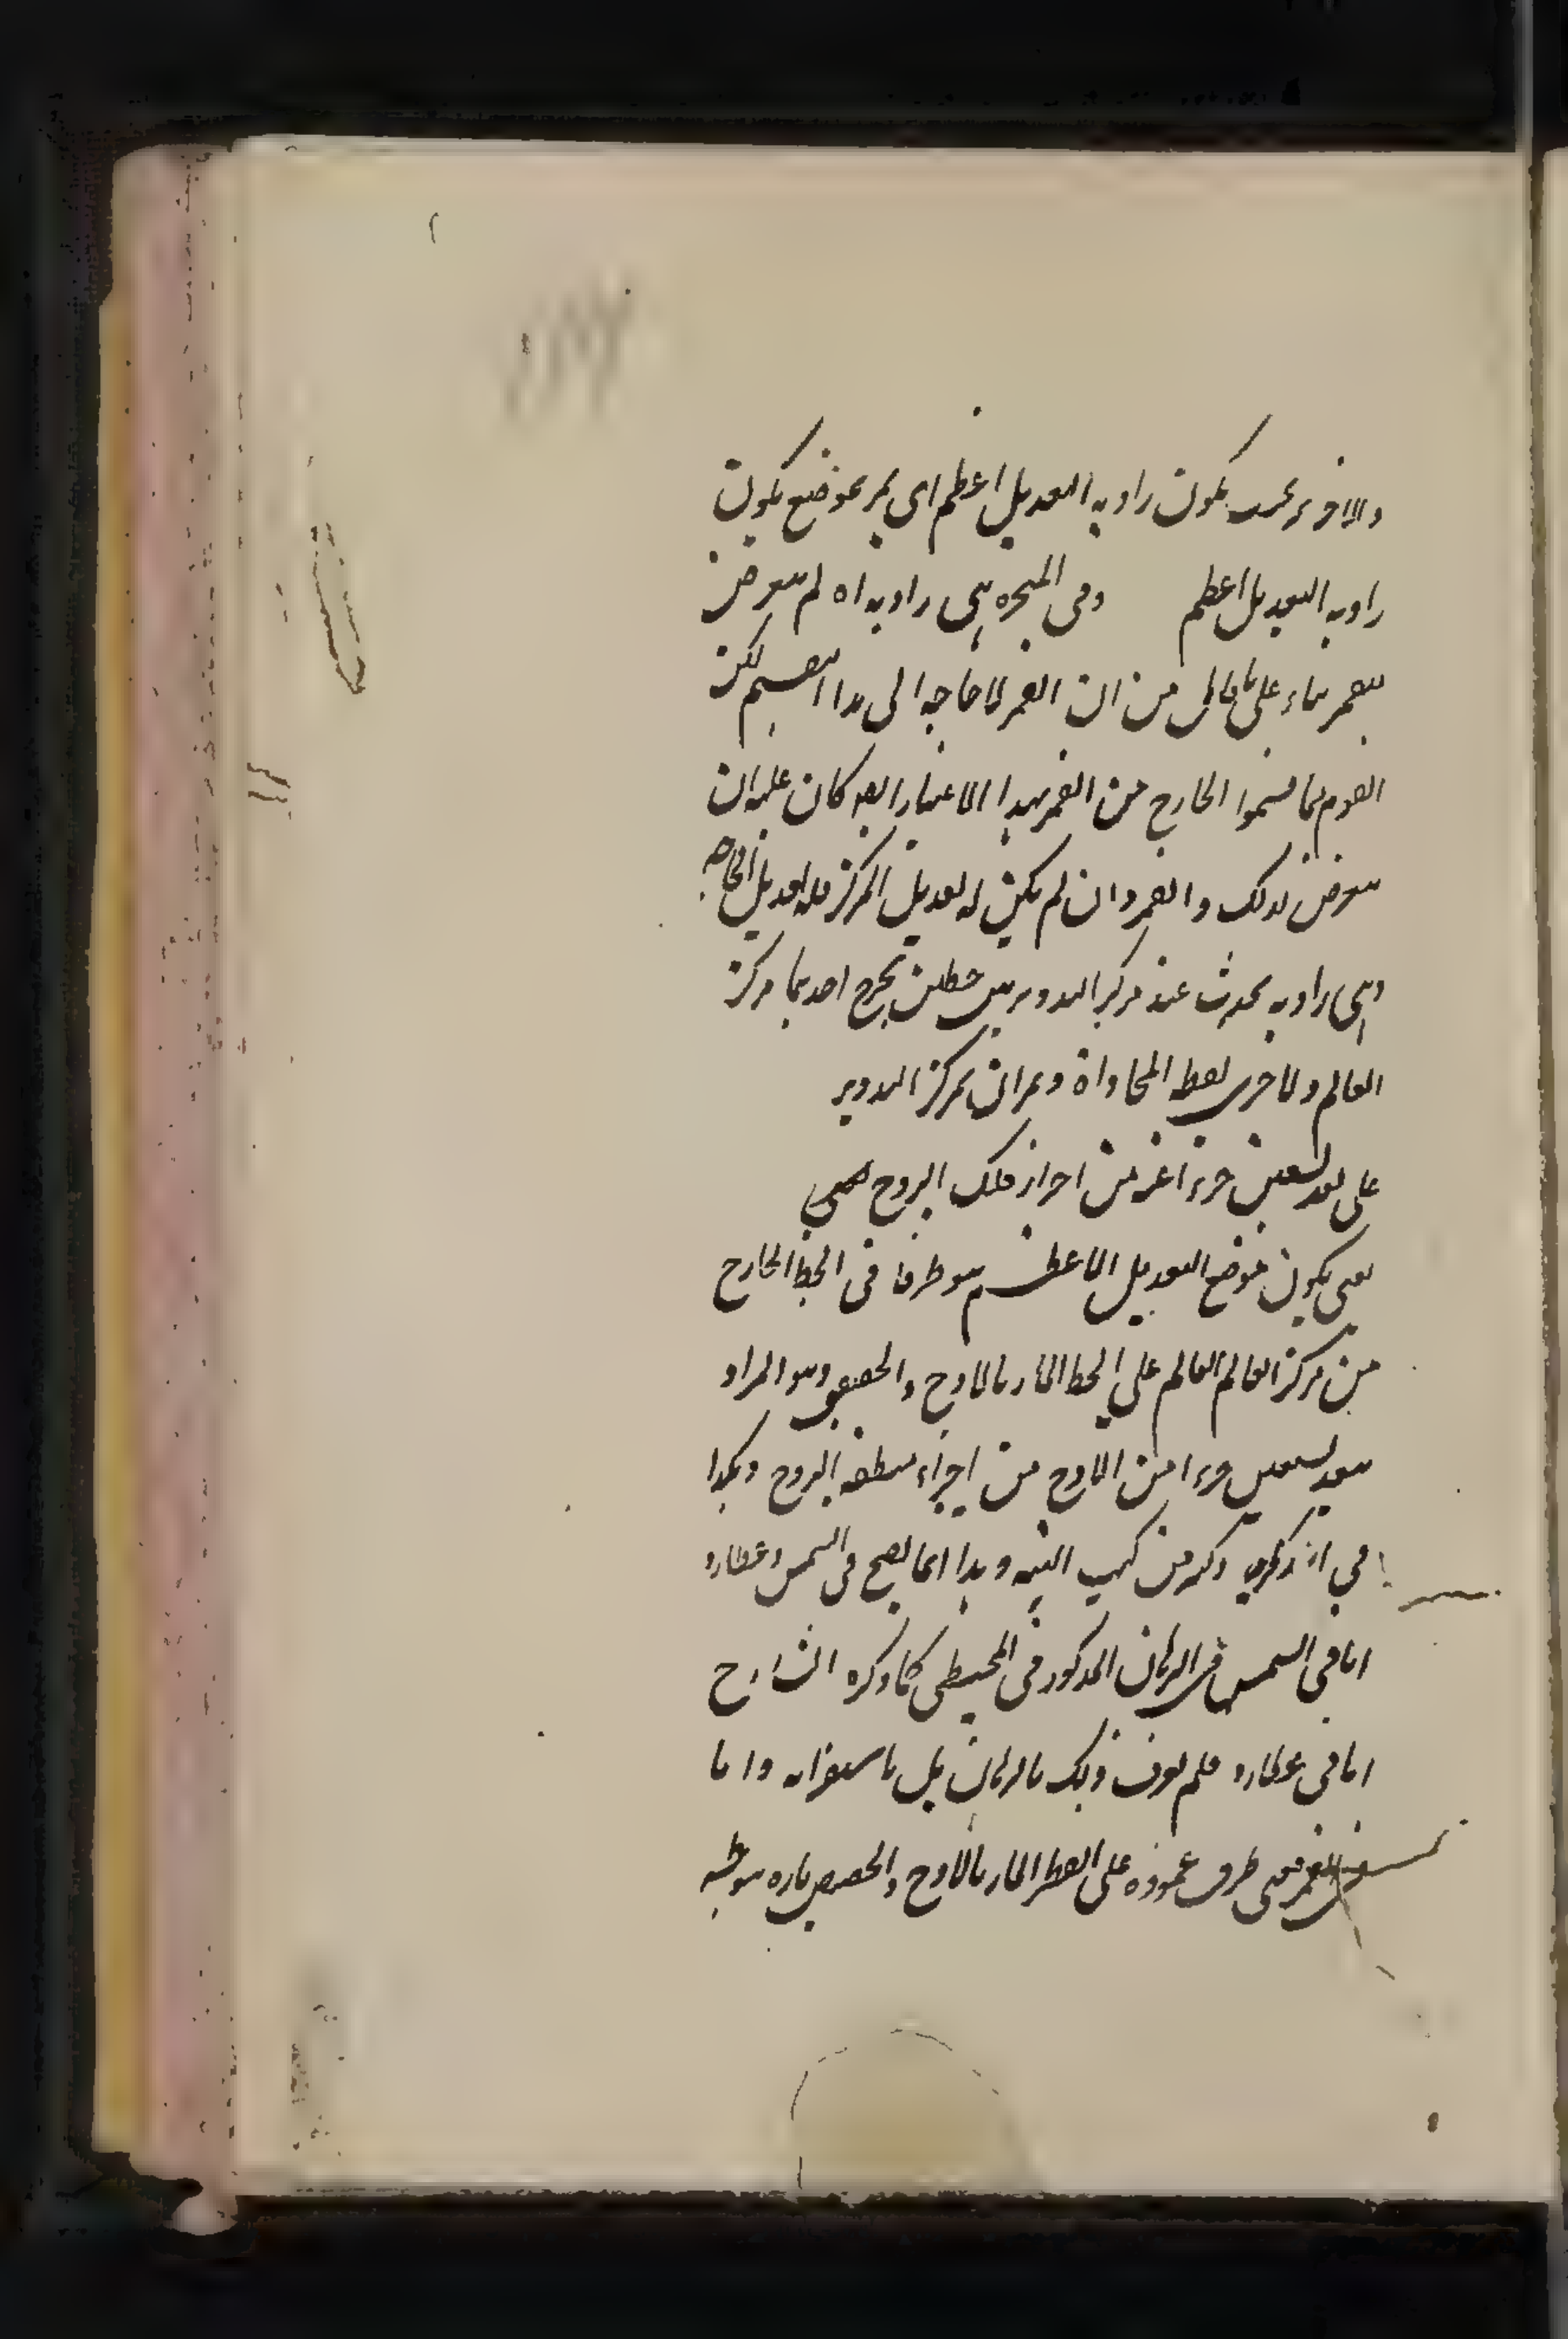 والاخر بحيث يكون زاوية التعديل اعظم اى يمر بموضع يكون
زاوية التعديل اعظم وفى المتحيرة هى زاوية اه لم يتعرض
للقمر بناء على ما قال من ان القمر لا حاجة الى هذا التقسيم لكن
القوم لما قسموا الخارج من القمر بهذا الاعتبار ايضا كان عليه ان
يتعرض لذلك والقمر وان لم يكن له تعديل المركز فله تعديل الخاصة
وهى زاوية تحدث عند مركز التدوير بين خطين يخرج احدهما مركز
العالم والاخر نقطة المحاذاة ويمران بمركز التدوير
على بعد تسعين جزءا من اجزاء فلك البروج
يعنى يكون موضع التعديل الاعظم هو طرفا فى الخط الخارج
من مركز العالم العالم على الخط المار بالاوج والحضيض وهو المراد
ببعد تسعين جزءا من الاوج من اجزاء منطقة البروج وهكذا
فى التذكرة وكثير من كتب الهيئة وهذا انما يصح فى الشمس وعطارد
اما فى الشمس البرهان المذكور فى المجسطى كما ذكره الشارح
اما فى عطارد فلم يعرف ذلك بالبرهان بل باستقراء واما
القمر ففى طرف عموده على القطر المار بالاوج والحضيض مارة